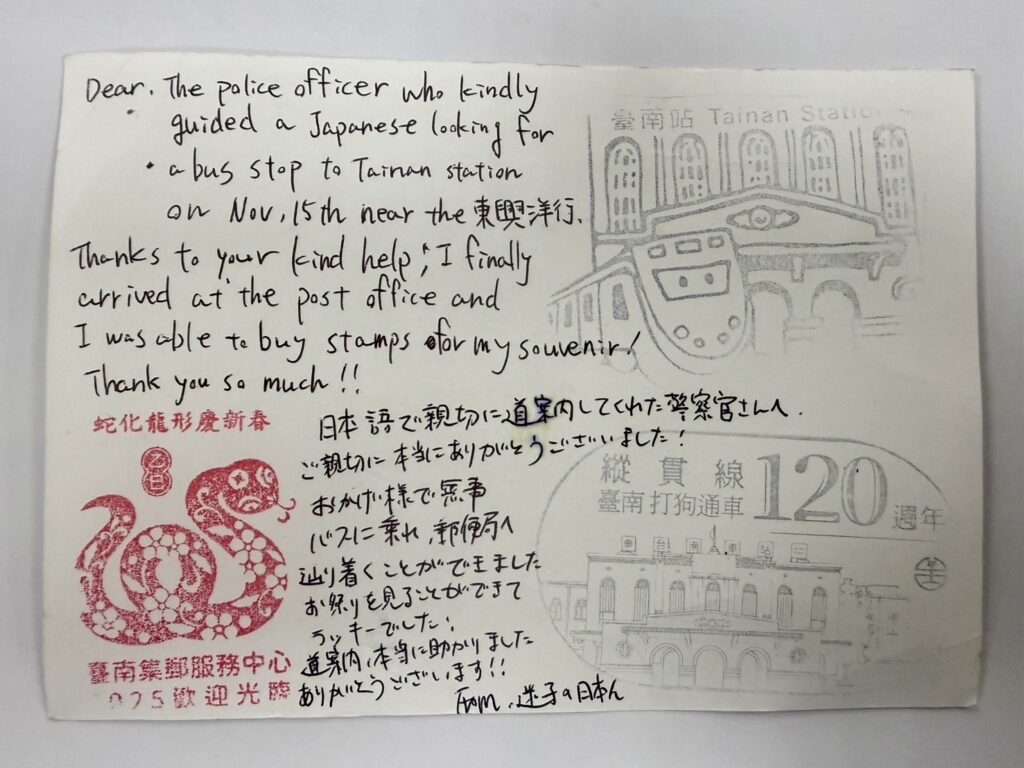 Dear. The police officer who kindly
guided a Japanese looking for
a bus stop to Tainan station
on Nov. 15th near the 東興洋行.
Thanks to your kind help, I finally
arrived at the post office and
I was able to buy stamps for my souvenir!
Thank you so much!!
臺南站 Tainan Station
蛇化龍形慶新春
乙巳
臺南集郵服務中心
歡迎光臨
日本語で親切に道案内してくれた警察官さんへ.
ご親切に本当にありがとうございました!
おかげ様で無事
バスに乗れ、郵便局へ
辿り着くことができました
お祭りを見ることができて
ラッキーでした!
道案内、本当に助かりました
ありがとうございます!!
From. 迷子の日本人
縱貫線
臺南打狗通車 120 週年